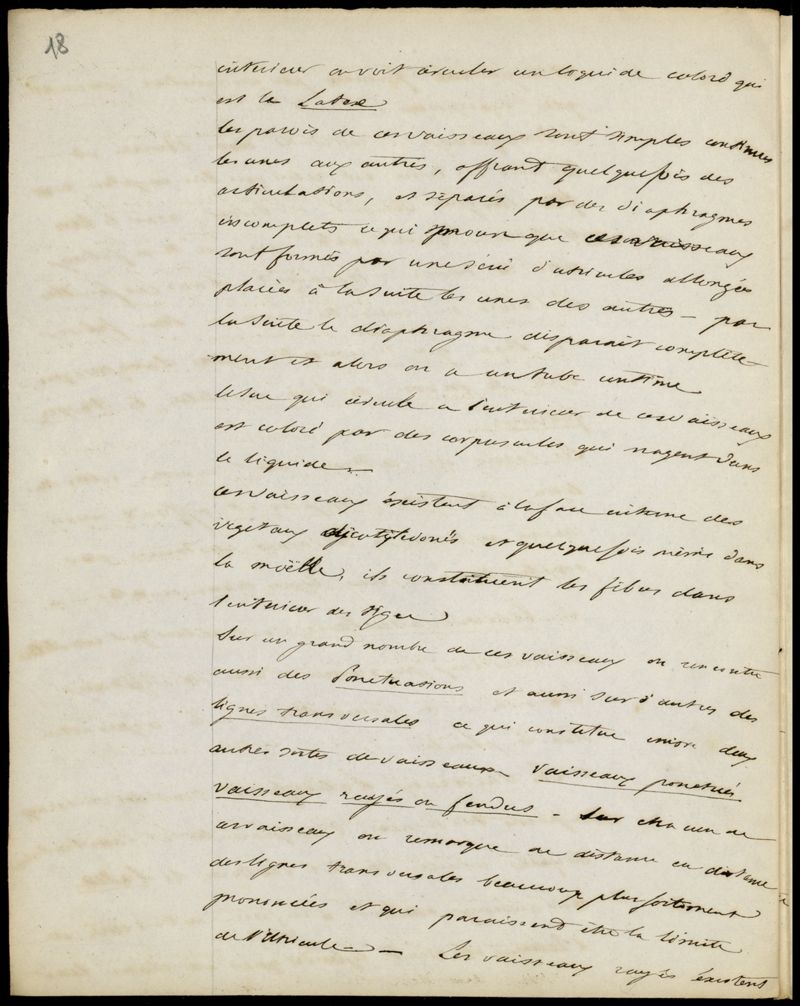 18
interieur on voit circuler un loquide coloré qui
est le Latex
les parois de ces vaisseaux sont simples continues
les unes aux autres, offrant quelquefois des
articulations, et separés par des diaphragmes
incomplets ce qui prouve que ces vaisseaux
sont formés par une série d'utricules allongées
placées à la suite les unes des autres – par
la suite le diaphragme disparait complete-
ment et alors on a un tube continue
le suc qui circule a l'interieur de ces vaisseaux
est coloré par des corpuscules qui nagent dans
le liquide –
ces vaisseaux éxistent à la face interne des
végétaux dycotyledonés et quelquefois même dans
la moëlle, ils constituent les fibres dans
l'interieur des tiges
Sur un grand nombre de ces vaisseaux on rencontre
aussi des Ponctuations et aussi sur d'autres des
lignes transversales ce qui constitue encore deux
autres sortes de vaisseaux vaisseaux ponctués
vaisseaux rayés ou fendus – Sur chacun de
ces vaisseaux on remarque de distance en distance
des lignes transversales beaucoup plus fortement
prononcées et qui paraissend être la limite
de l'utricule – Les vaisseaux rayés éxistent